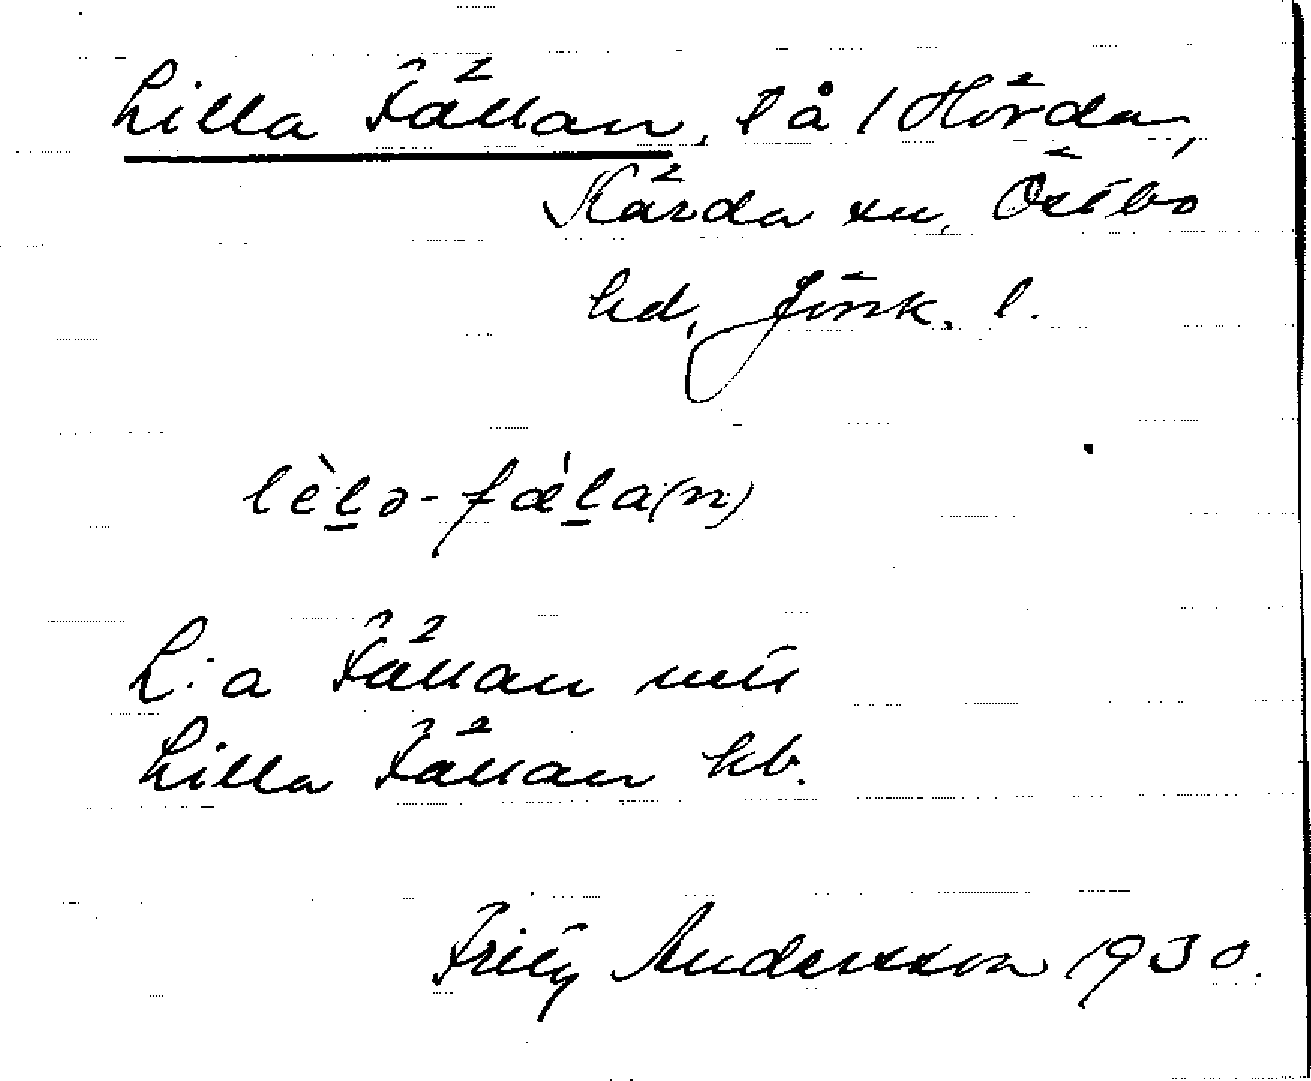 Lilla Fällan, lå / Hörda,
Kärda sn, Östbo
hd, Jönk. l.
lèḻə-fæ̀ḻa(n)
L:a Fällan
Lilla Fällan kb.
Fritz Andersson 1930.